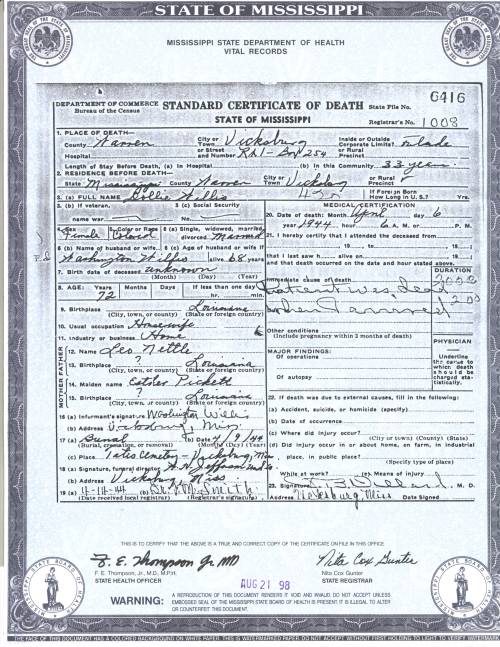 STATE OF MISSISSIPPI
MISSISSIPPI STATE DEPARTMENT OF HEALTH
VITAL RECORDS
DEPARTMENT OF COMMERCE STANDARD CERTIFICATE OF DEATH State File No. 6416
Bureau of the Census STATE OF MISSISSIPPI Registrar's No. 1008
1. PLACE OF DEATH—
County Warren City or Town Vicksburg Inside or Outside Corporate Limits?
Hospital or Street and Number Box 254 or Rural Precinct
Length of Stay Before Death, (a) In Hospital (b) In this Community 33 years
2. RESIDENCE BEFORE DEATH—
State Mississippi County Warren City or Town Vicksburg or Rural Precinct
3. (a) FULL NAME Willis If Foreign Born How Long in U. S.? Yrs.
3. (b) If veteran, name war 3 (c) Social Security No.
4. Sex Female 5. Color or Race Colored 6 (a) Single, widowed, married, divorced Married
6 (b) Name of husband or wife Washington Willis 6 (c) Age of husband or wife if alive 68 years
7. Birth date of deceased unknown
(Month) (Day) (Year)
8. AGE: Years 72 Months Days If less than one day hr. min.
9. Birthplace Louisiana
(City, town, or county) (State or foreign country)
10. Usual occupation Housewife
11. Industry or business Home
FATHER
12. Name Leo Nettle
13. Birthplace Louisiana
(City, town, or county) (State or foreign country)
MOTHER
14. Maiden name Esther Pickett
15. Birthplace Louisiana
(City, town, or county) (State or foreign country)
16 (a) Informant's signature Washington Willis
(b) Address Vicksburg, Miss.
17 (a) Burial (b) Date 4/9/44
(Burial, cremation, or removal) (Month) (Day) (Year)
(c) Place Vicksburg, Miss
18 (a) Signature, funeral director Jefferson
(b) Address Vicksburg, Miss
19 (a) 4-14-44 (b) Smith
(Date received local registrar) (Registrar's signature)
MEDICAL CERTIFICATION
20. Date of Death: Month April day 6
year 1944 hour 6 A. M. or P. M.
21. I hereby certify that I attended the deceased from
19 to 19
that I last saw h alive on 19
and that death occurred on the date and hour stated above.
DURATION
Immediate cause of death
Patient was dead
when I arrived
Other conditions
(Include pregnancy within 3 months of death)
MAJOR FINDINGS:
Of operations
Of autopsy
PHYSICIAN
Underline the cause to which death should be charged statistically.
22. If death was due to external causes, fill in the following:
(a) Accident, suicide, or homicide (specify)
(b) Date of occurrence
(c) Where did injury occur?
(City or town) (County) (State)
(d) Did injury occur in or about home, on farm, in industrial
place, in public place?
(Specify type of place)
While at work? (e) Means of injury
23. Signature M. D.
Address Vicksburg, Miss Date Signed
THIS IS TO CERTIFY THAT THE ABOVE IS A TRUE AND CORRECT COPY OF THE CERTIFICATE ON FILE IN THIS OFFICE
F. E. Thompson Jr MD Nita Cox Gunter
F. E. Thompson, Jr., M.D., M.P.H. Nita Cox Gunter
STATE HEALTH OFFICER STATE REGISTRAR
AUG 21 98
WARNING: A REPRODUCTION OF THIS DOCUMENT RENDERS IT VOID AND INVALID. DO NOT ACCEPT UNLESS
EMBOSSED SEAL OF THE MISSISSIPPI STATE BOARD OF HEALTH IS PRESENT. IT IS ILLEGAL TO ALTER
OR COUNTERFEIT THIS DOCUMENT.